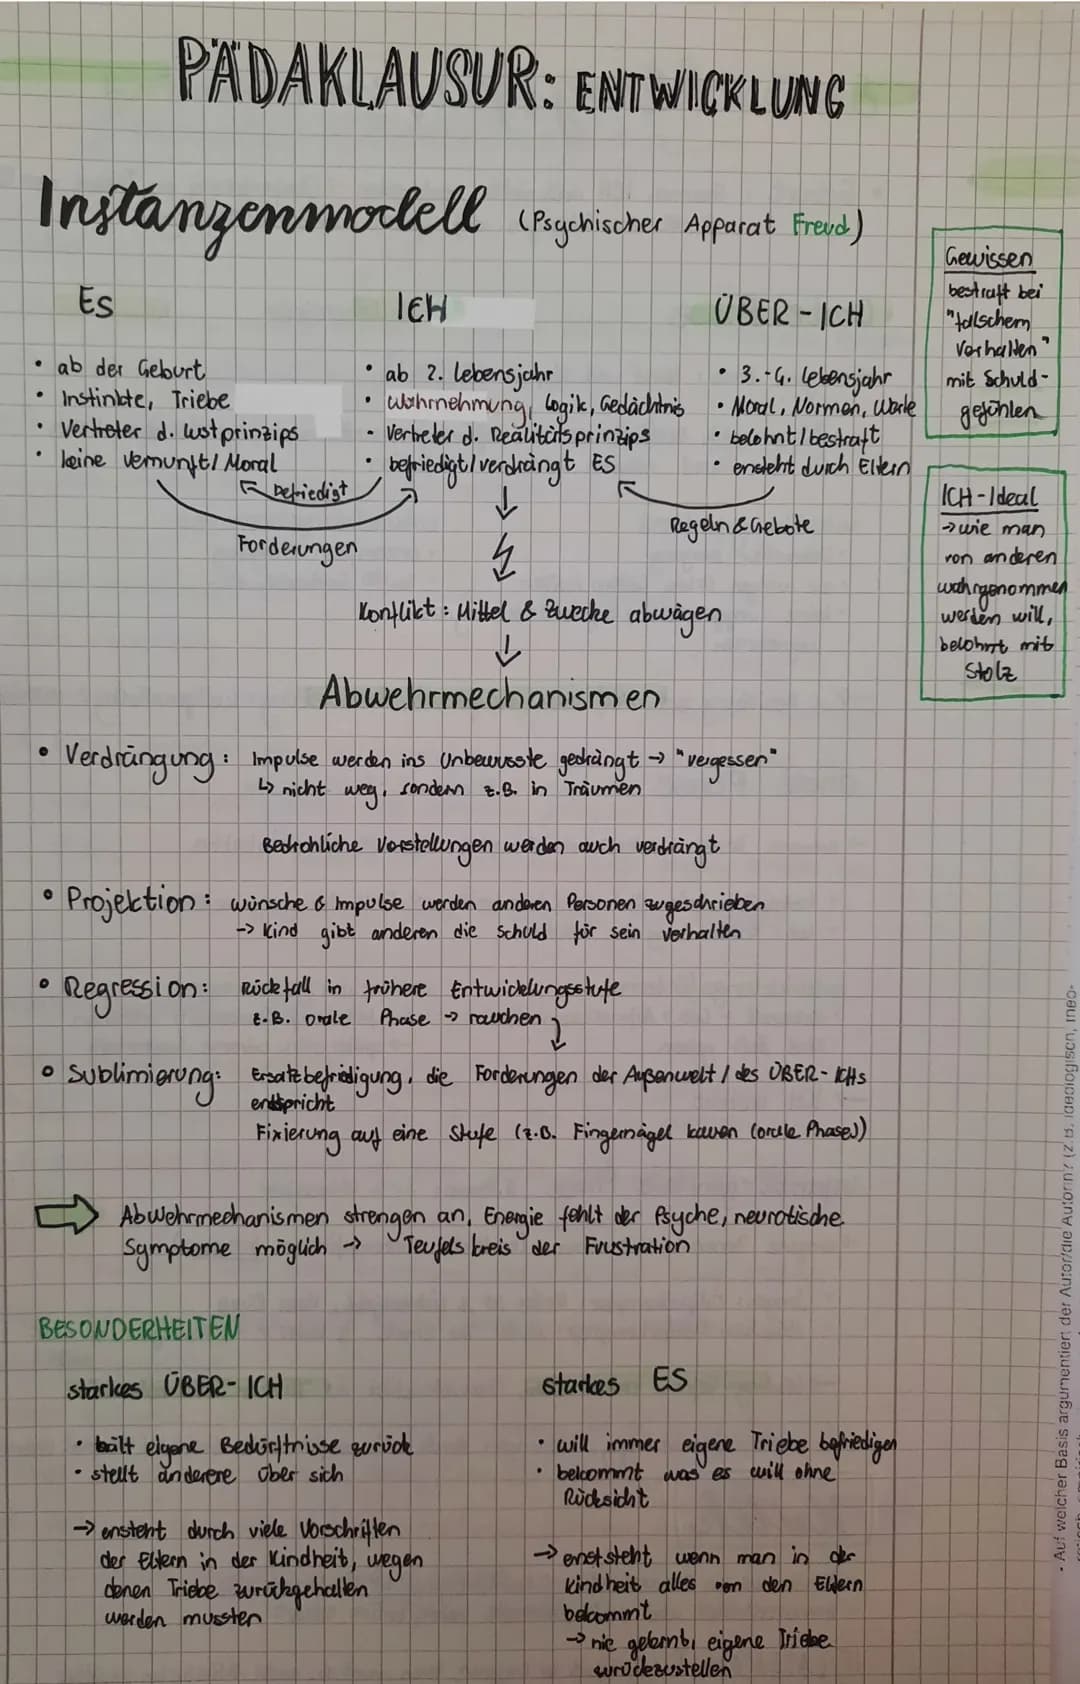 PÄDAKLAUSUR: ENTWICKLUNG
Instanzenmodell (Psychischer Apparat Freud)
ES
• ab der Geburt
• Instinkte, Triebe
• Vertreter d. Lustprinzips
• keine Vernunft/ Moral
ICH
• ab 2. Lebensjahr
• Wahrnehmung, Logik, Gedächtnis
• Vertreter d. Realitätsprinzips
• befriedigt/verdrängt ES
ÜBER-ICH
• 3.-4. Lebensjahr
• Moral, Normen, Werte
• belohnt/bestraft
• ensteht durch Eltern
befriedigt
Forderungen
Regeln & Gebote
Gewissen
bestraft bei
"falschem
Verhalten"
mit Schuld-
gefühlen
ICH-Ideal
→ wie man
von anderen
wahrgenommen
werden will,
belohnt mit
Stolz
Konflikt: Mittel & Zwecke abwägen
Abwehrmechanismen
• Verdrängung: Impulse werden ins Unbewusste gedrängt → "vergessen"
↳ nicht weg, sondern z.B. in Träumen
Bedrohliche Vorstellungen werden auch verdrängt
• Projektion: wünsche & Impulse werden anderen Personen zugeschrieben
-> Kind gibt anderen die Schuld für sein Verhalten
• Regression: Rückfall in frühere Entwicklungsstufe
z.B. orale Phase → rauchen
• Sublimierung: Ersatzbefriedigung, die Forderungen der Außenwelt / des ÜBER-ICHs
entspricht
Fixierung auf eine Stufe (z.B. Fingernägel kauen (orale Phase))
⇒ Abwehrmechanismen strengen an, Energie fehlt der Psyche, neurotische
Symptome möglich → Teufelskreis der Frustration
BESONDERHEITEN
starkes ÜBER-ICH
• hält eigene Bedürftnisse zurück
• stellt anderere über sich
→ ensteht durch viele Vorschriften
der Eltern in der Kindheit, wegen
denen Triebe zurückgehalten
werden mussten
starkes ES
• will immer eigene Triebe befriedigen
• bekommt was es will ohne
Rücksicht
→ enststeht wenn man in der
Kindheit alles von den Eltern
bekommt
→ nie gelernt, eigene Triebe
zurückzustellen
• Auf welcher Basis argumentiert der Autor/die Autorin? (z.B. ideologisch, theo-